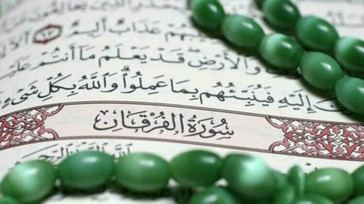 عَذَابٌ أَلِيمٌ ٦٣
وَٱلْأَرْضِ قَدْ يَعْلَمُ مَآ أَنتُمْ
إِلَيْهِ فَيُنَبِّئُهُم بِمَا عَمِلُوا۟ ۗ وَٱللَّهُ بِكُلِّ شَىْءٍ
سُورَةُ الْفُرْقَانِ
ٱللَّهِ